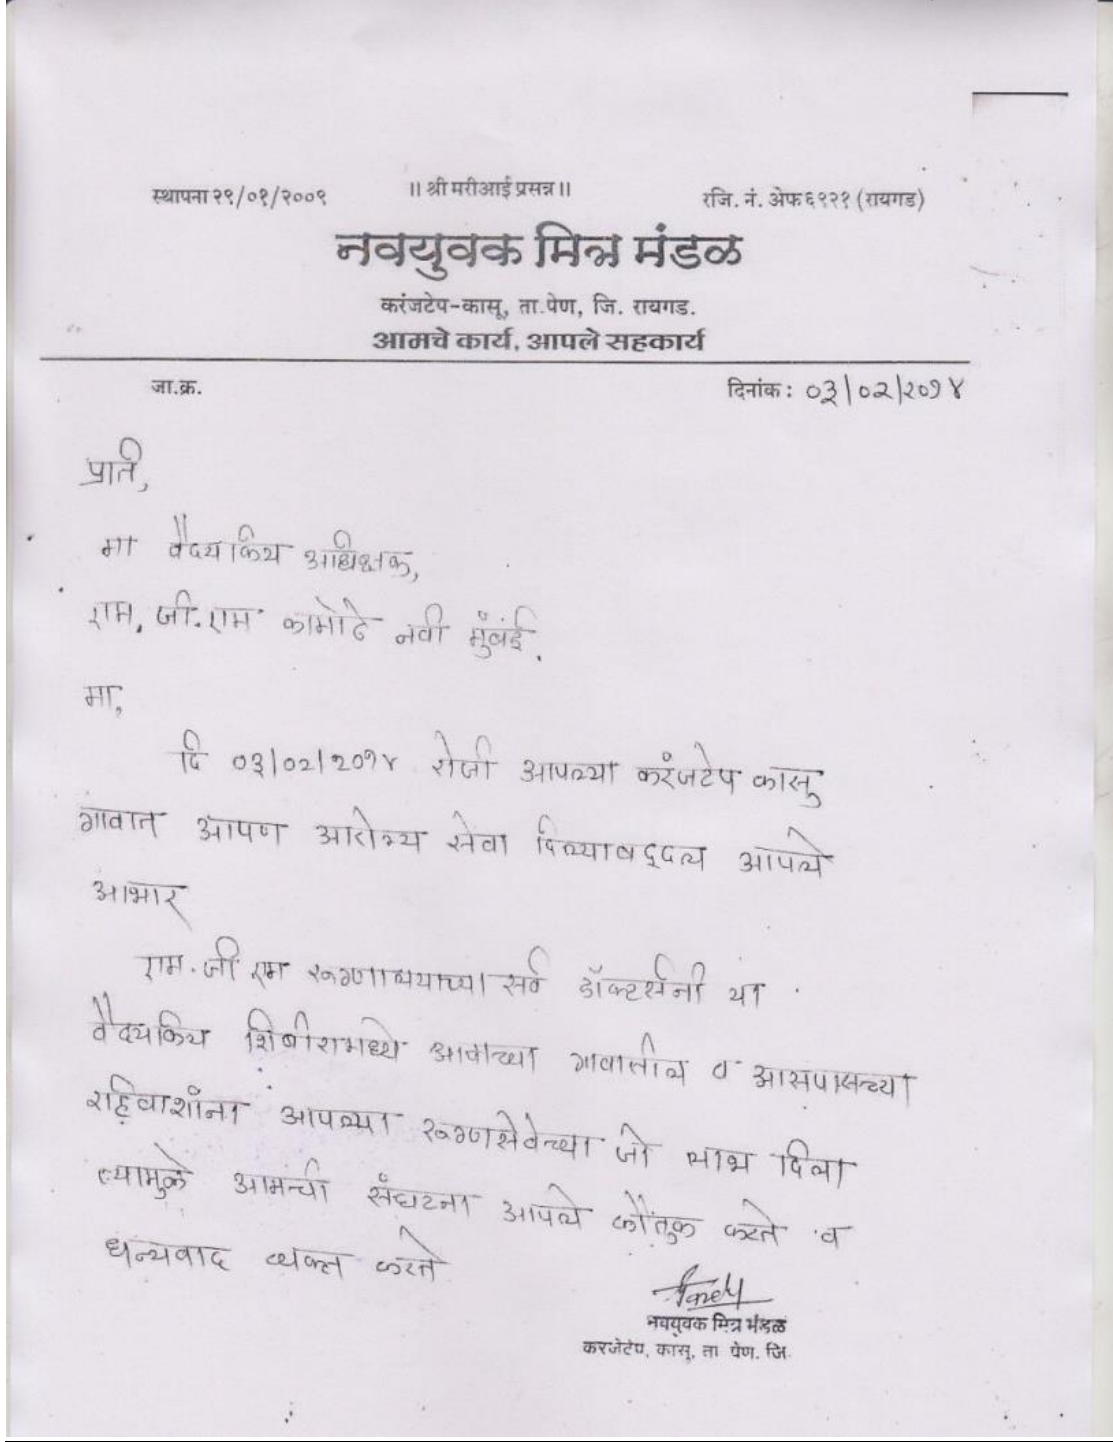 ॥ श्री मरीआई प्रसन्न ॥
स्थापना २९/०१/२००९ रजि. नं. अेफ ६९२१ (रायगड)
नवयुवक मित्र मंडळ
करंजटेप-कासू, ता.पेण, जि. रायगड.
आमचे कार्य, आपले सहकार्य
जा.क्र. दिनांक : ०३/०२/२०१४
प्रति,
मा वैद्यकिय अधिक्षक,
एम. जी. एम कामोठे नवी मुंबई.
मा,
दि ०३/०२/२०१४ रोजी आपल्या करंजटेप कासु
गावात आपण आरोग्य सेवा दिल्याबद्दल आपले
आभार
एम. जी एम रूग्णालयाच्या सर्व डॉक्टर्सनी या
वैद्यकिय शिबीरामध्ये आमच्या गावातील व आसपासच्या
रहिवाशांना आपल्या रूग्णसेवेच्या जो लाभ दिला
त्यामुळे आमची संघटना आपले कौतुक करते व
धन्यवाद व्यक्त करते
नवयुवक मित्र मंडळ
करजेटेप, कासू, ता पेण. जि.